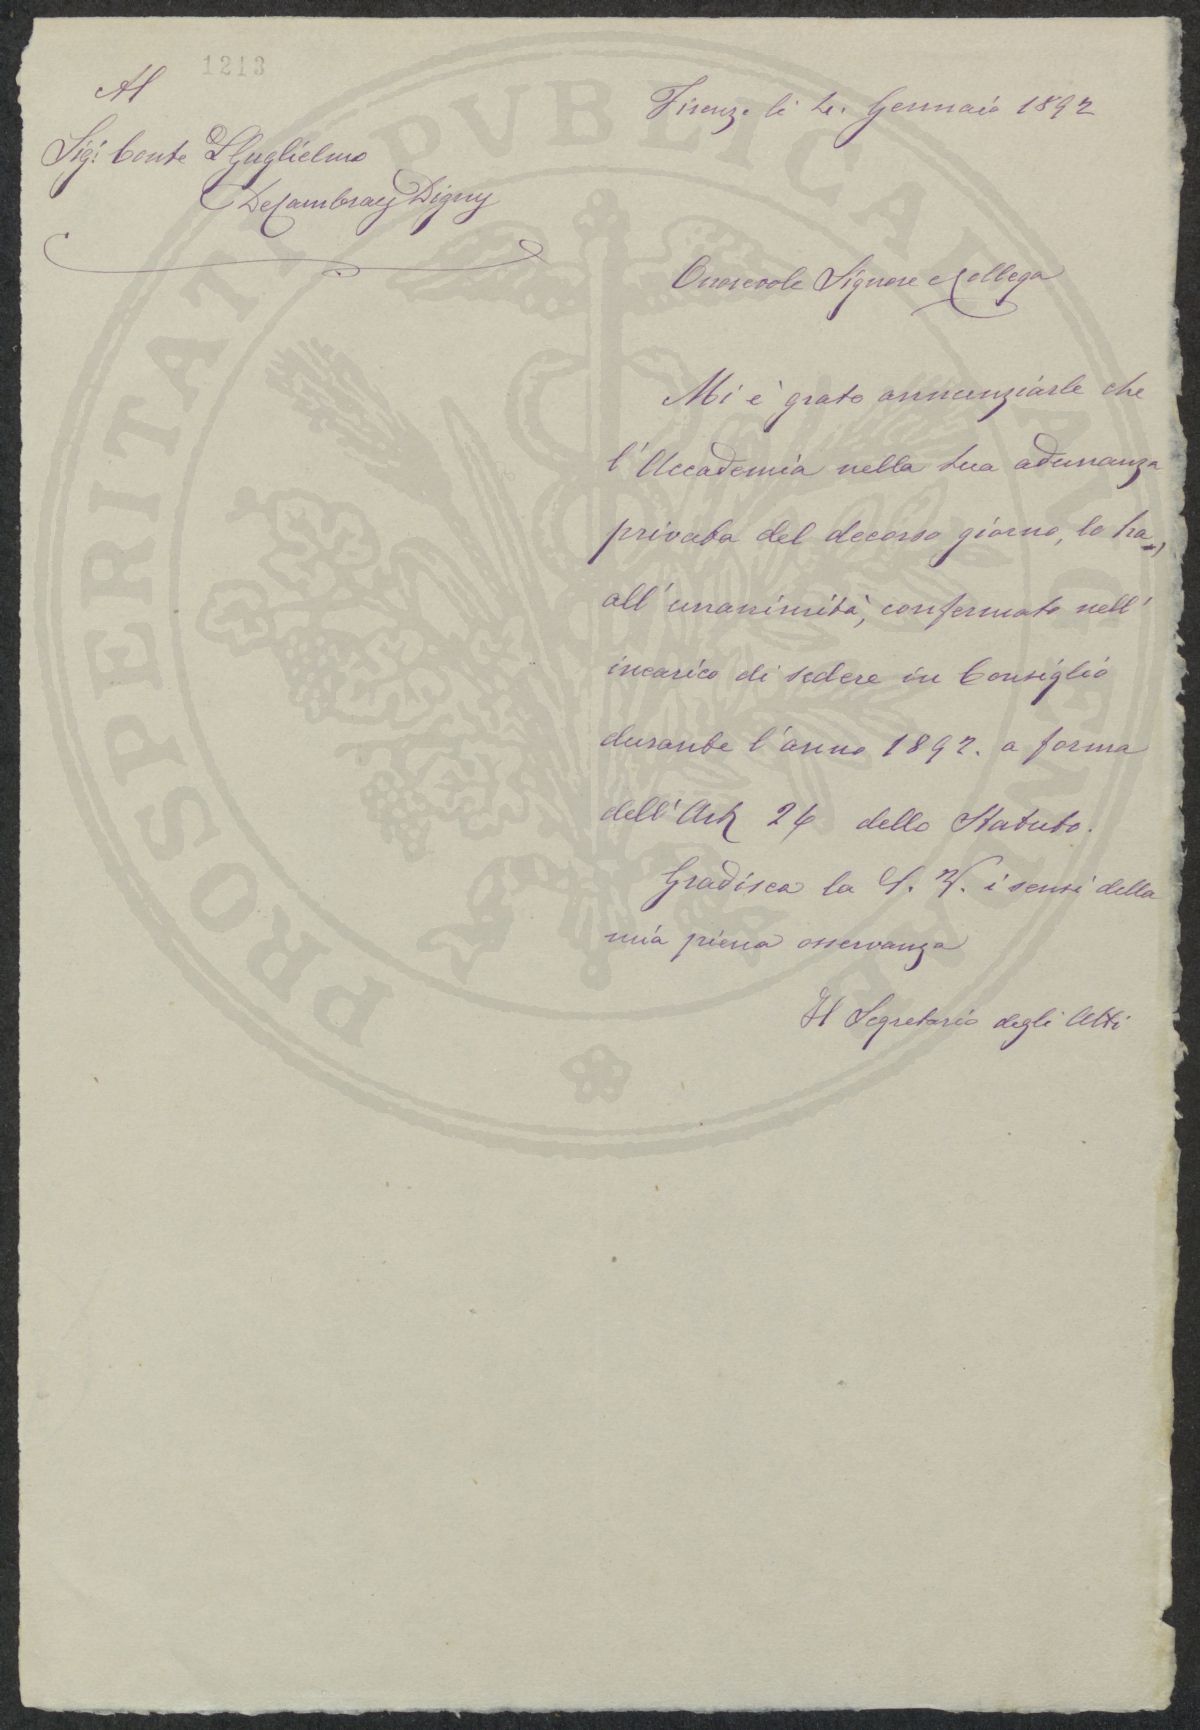 1213
Al
Sig: Conte Guglielmo
DeCambray Digny
Firenze li 4. Gennaio 1892
Onorevole Signore e Collega
Mi è grato annunziarle che
l'Accademia nella sua adunanza
privata del decorso giorno, lo ha,
all'unanimità, confermato nell'
incarico di sedere in Consiglio
durante l'anno 1892. a forma
dell'Art 26 dello Statuto.
Gradisca la S. V. i sensi della
mia piena osservanza
Il Segretario degli Atti
PROSPERITATI PVBLICAE AVGENDAE